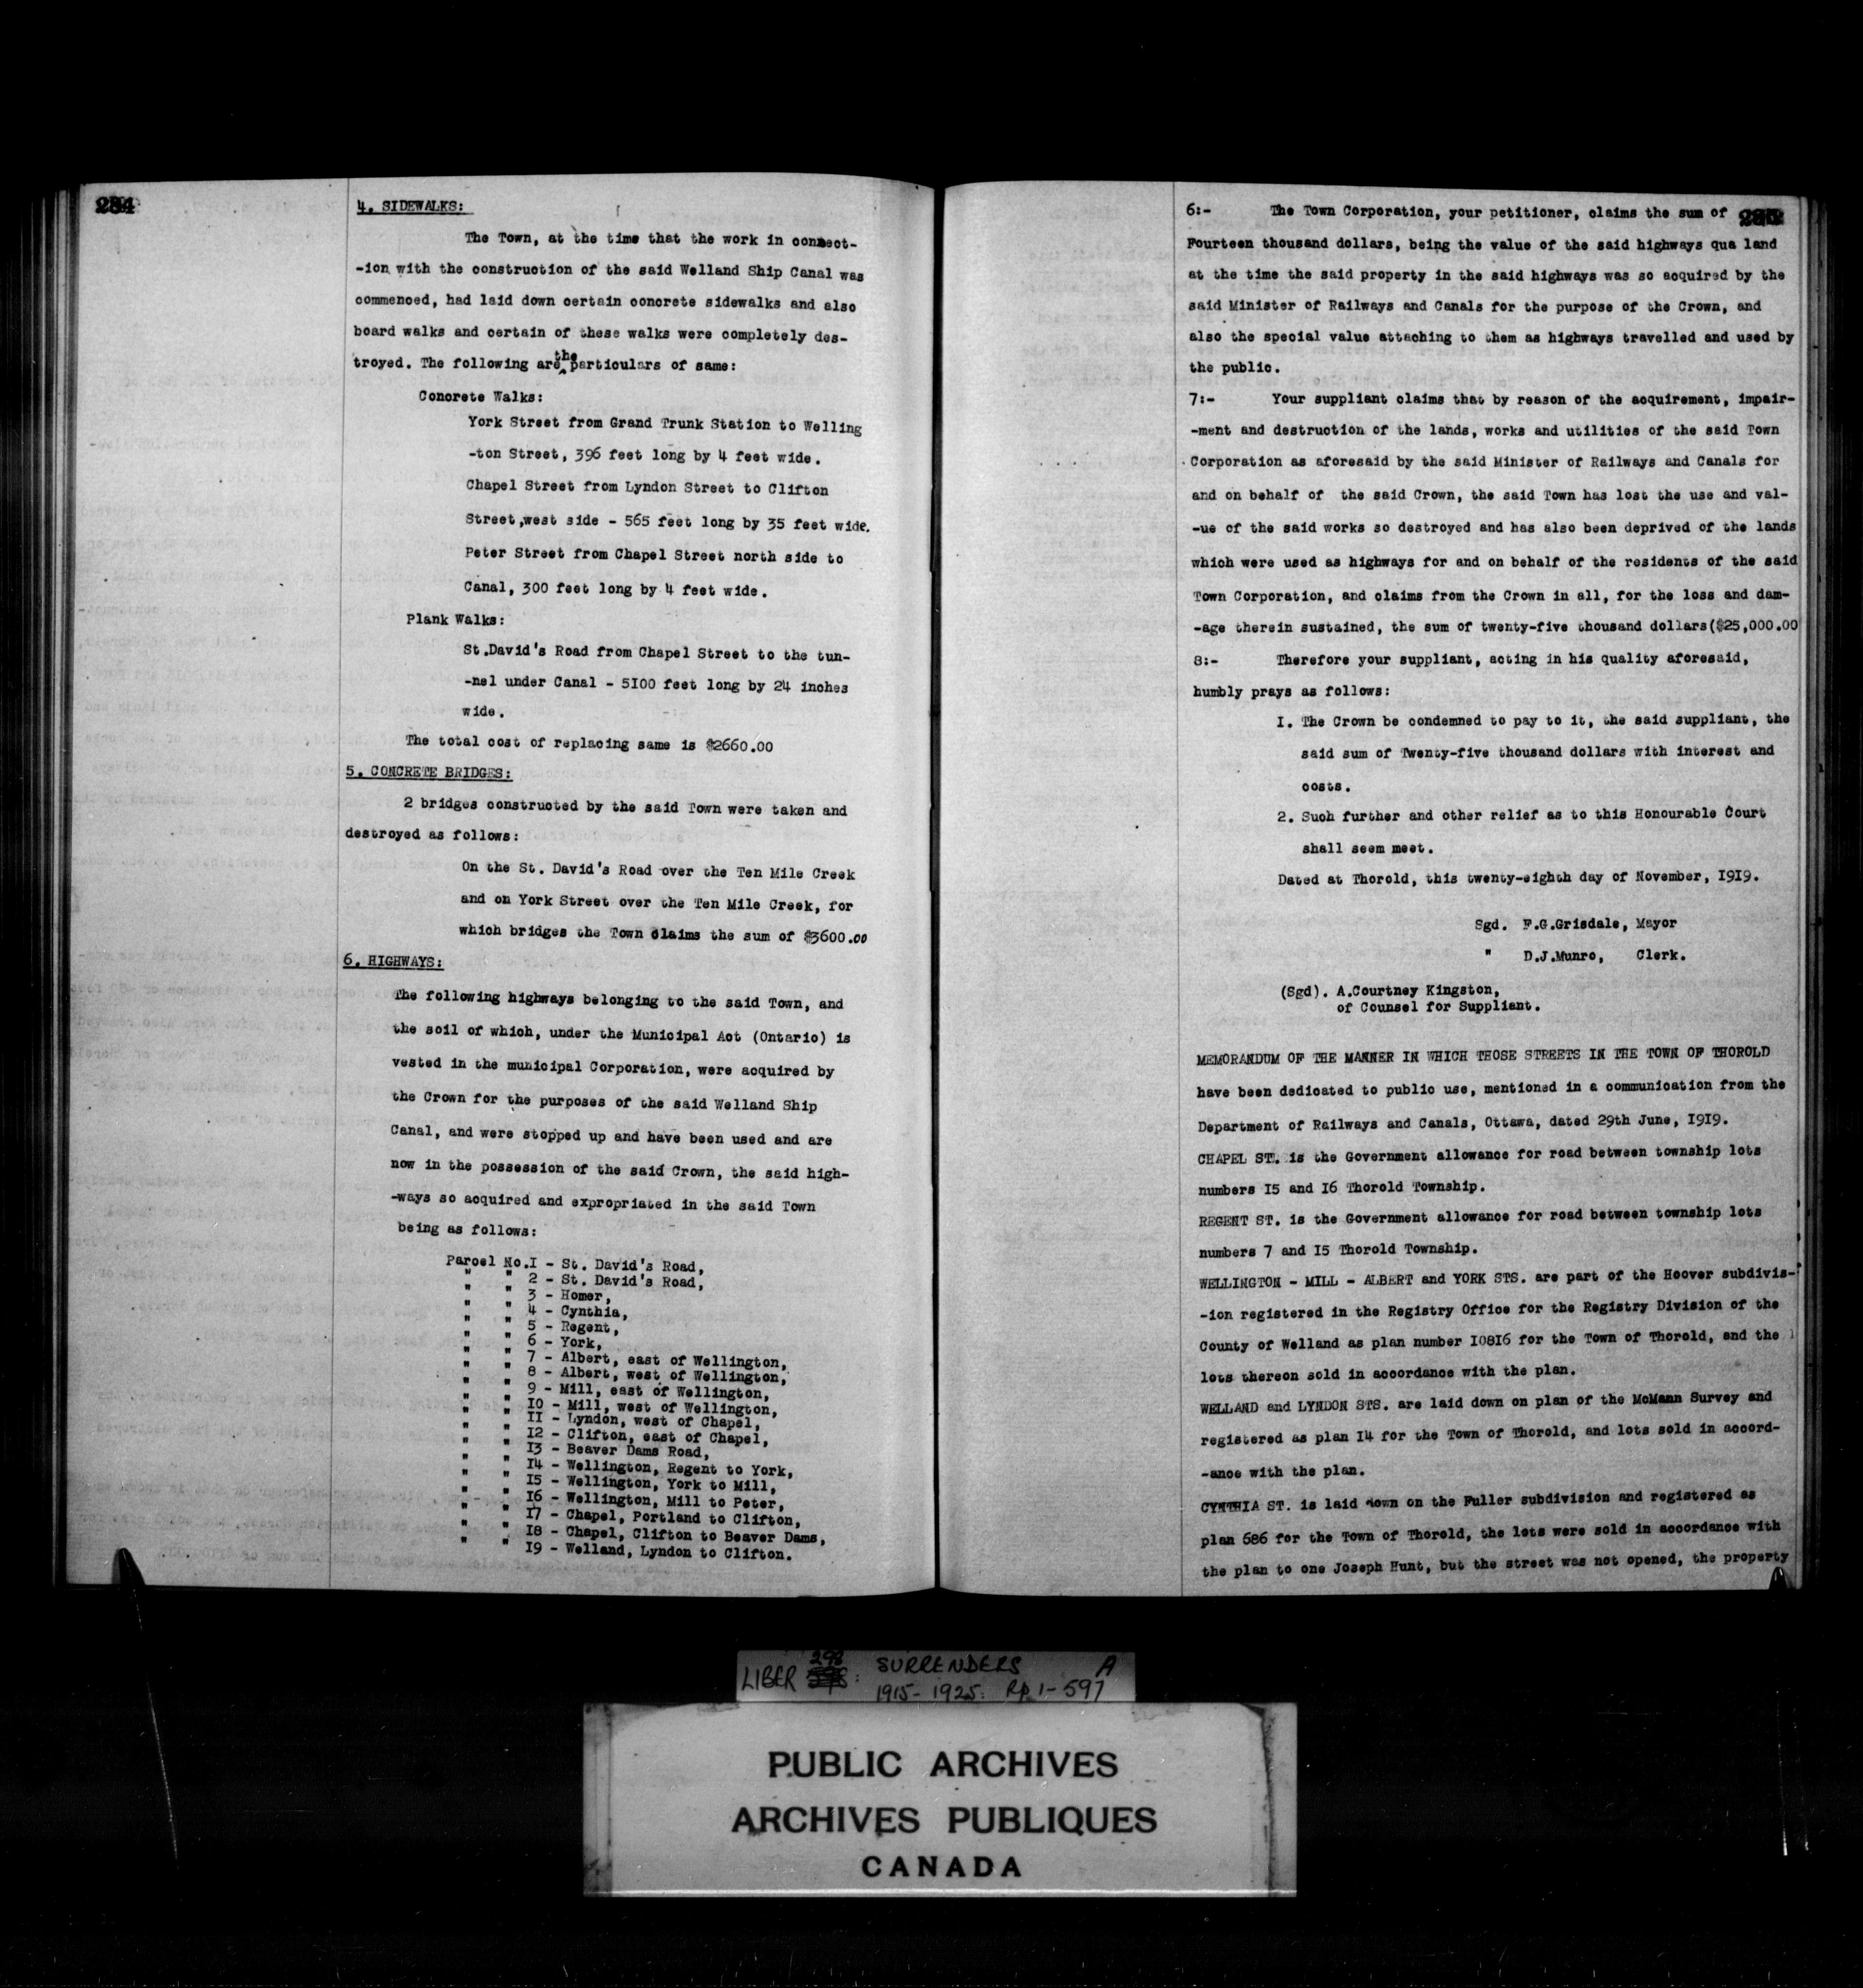 284
4. SIDEWALKS:
The Town, at the time that the work in connect-
-ion with the construction of the said Welland Ship Canal was
commenced, had laid down certain concrete sidewalks and also
board walks and certain of these walks were completely des-
the
troyed. The following are particulars of same:
Concrete Walks:
York Street from Grand Trunk Station to Welling
-ton Street, 396 feet long by 4 feet wide.
Chapel Street from Lyndon Street to Clifton
Street,west side - 565 feet long by 35 feet wide.
Peter Street from Chapel Street north side to
Canal, 300 feet long by 4 feet wide.
Plank Walks:
St.David's Road from Chapel Street to the tun-
-nel under Canal - 5I00 feet long by 24 inches
wide.
The total cost of replacing same is $2660.00
5. CONCRETE BRIDGES:
2 bridges constructed by the said Town were taken and
destroyed as follows:
On the St. David's Road over the Ten Mile Creek
and on York Street over the Ten Mile Creek, for
which bridges the Town claims the sum of $3600.00
6. HIGHWAYS:
The following highways belonging to the said Town, and
the soil of which, under the Municipal Act (Ontario) is
vested in the municipal Corporation, were acquired by
the Crown for the purposes of the said Welland Ship
Canal, and were stopped up and have been used and are
now in the possession of the said Crown, the said high-
-ways so acquired and expropriated in the said Town
being as follows:
Parcel No.I - St. David's Road,
" " 2 - St. David's Road,
" " 3 - Homer,
" " 4 - Cynthia,
" " 5 - Regent,
" " 6 - York,
" " 7 - Albert, east of Wellington,
" " 8 - Albert, west of Wellington,
" " 9 - Mill, east of Wellington,
" " I0 - Mill, west of Wellington,
" " II - Lyndon, west of Chapel,
" " I2 - Clifton, east of Chapel,
" " I3 - Beaver Dams Road,
" " I4 - Wellington, Regent to York,
" " I5 - Wellington, York to Mill,
" " I6 - Wellington, Mill to Peter,
" " I7 - Chapel, Portland to Clifton,
" " I8 - Chapel, Clifton to Beaver Dams,
" " I9 - Welland, Lyndon to Clifton.
6:- The Town Corporation, your petitioner, claims the sum of
Fourteen thousand dollars, being the value of the said highways qua land
at the time the said property in the said highways was so acquired by the
said Minister of Railways and Canals for the purpose of the Crown, and
also the special value attaching to them as highways travelled and used by
the public.
7:- Your suppliant claims that by reason of the acquirement, impair-
-ment and destruction of the lands, works and utilities of the said Town
Corporation as aforesaid by the said Minister of Railways and Canals for
and on behalf of the said Crown, the said Town has lost the use and val-
-ue of the said works so destroyed and has also been deprived of the lands
which were used as highways for and on behalf of the residents of the said
Town Corporation, and claims from the Crown in all, for the loss and dam-
-age therein sustained, the sum of twenty-five thousand dollars($25,000.00
8:- Therefore your suppliant, acting in his quality aforesaid,
humbly prays as follows:
I. The Crown be condemned to pay to it, the said suppliant, the
said sum of Twenty-five thousand dollars with interest and
costs.
2. Such further and other relief as to this Honourable Court
shall seem meet.
Dated at Thorold, this twenty-eighth day of November, I9I9.
Sgd. F.G.Grisdale, Mayor
" D.J.Munro, Clerk.
(Sgd). A.Courtney Kingston,
of Counsel for Suppliant.
MEMORANDUM OF THE MANNER IN WHICH THOSE STREETS IN THE TOWN OF THOROLD
have been dedicated to public use, mentioned in a communication from the
Department of Railways and Canals, Ottawa, dated 29th June, I9I9.
CHAPEL ST. is the Government allowance for road between township lots
numbers I5 and I6 Thorold Township.
REGENT ST. is the Government allowance for road between township lots
numbers 7 and I5 Thorold Township.
WELLINGTON - MILL - ALBERT and YORK STS. are part of the Hoover subdivis-
-ion registered in the Registry Office for the Registry Division of the
County of Welland as plan number I08I6 for the Town of Thorold, and the
lots thereon sold in accordance with the plan.
WELLAND and LYNDON STS. are laid down on plan of the McMann Survey and
registered as plan I4 for the Town of Thorold, and lots sold in accord-
-ance with the plan.
CYNTHIA ST. is laid down on the Fuller subdivision and registered as
plan 686 for the Town of Thorold, the lots were sold in accordance with
the plan to one Joseph Hunt, but the street was not opened, the property
LIBER 298: SURRENDERS A
1915-1925. Pp 1-597
PUBLIC ARCHIVES
ARCHIVES PUBLIQUES
CANADA